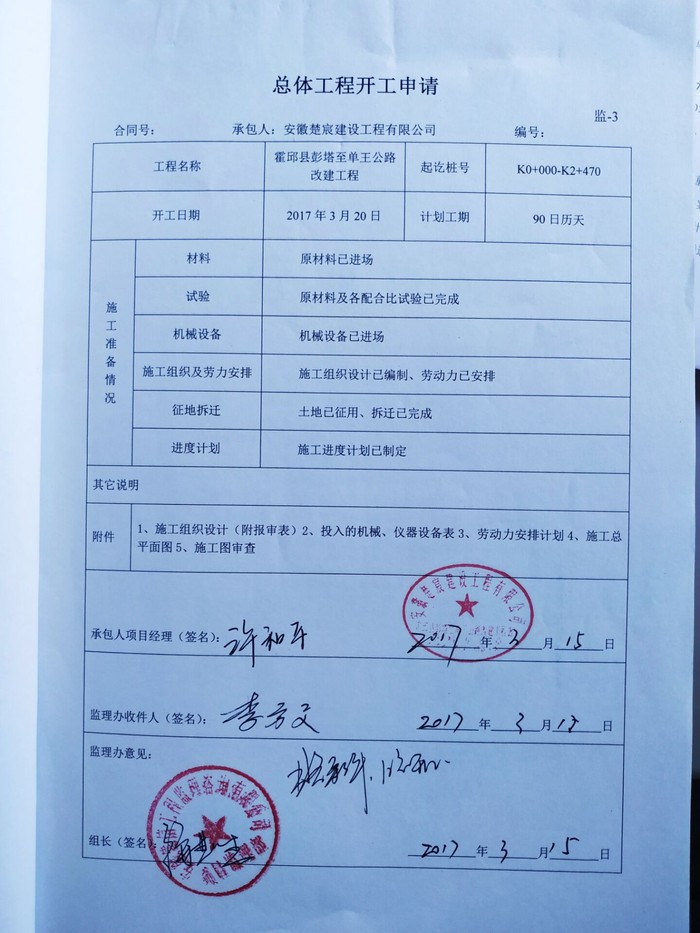 总体工程开工申请
监-3
合同号： 承包人：安徽楚宸建设工程有限公司 编号：
工程名称 霍邱县彭塔至单王公路改建工程 起讫桩号 K0+000-K2+470
开工日期 2017年3月20日 计划工期 90日历天
施工准备情况
材料 原材料已进场
试验 原材料及各配合比试验已完成
机械设备 机械设备已进场
施工组织及劳力安排 施工组织设计已编制、劳动力已安排
征地拆迁 土地已征用、拆迁已完成
进度计划 施工进度计划已制定
其它说明
附件 1、施工组织设计（附报审表）2、投入的机械、仪器设备表3、劳动力安排计划4、施工总
平面图5、施工图审查
承包人项目经理（签名）： 许和平 2017年3月15日
监理办收件人（签名）： 李方文 2017年3月15日
监理办意见：
组长（签名）： 2017年3月15日